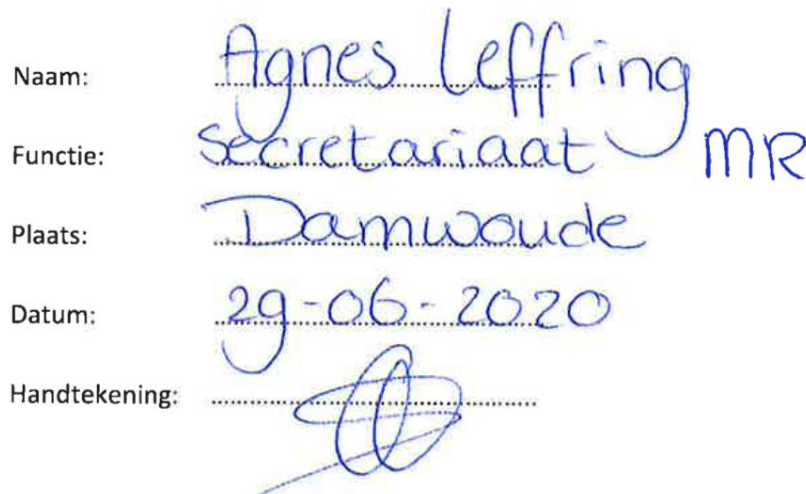 Naam: Agnes Leffring
Functie: secretariaat MR
Plaats: Damwoude
Datum: 29-06-2020
Handtekening: